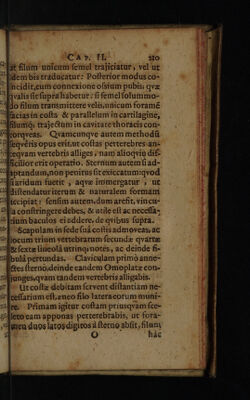 CAP. II. 210
at filum unicum semel trajiciatur, vel ut
idem bis traducatur: Posterior modus co
incidit, cum connexione ossium pubis, quæ
avis sit supra habetur: si semel solummo
do filum transmittere velis, unicum foramẽ
facias in costa & parallelum in cartilagine,
filumq; trajectum in cavitate thoracis con
torqveas. Quamcunque autem methodũ
seqvêris opus erit, ut costas perterebres an
teqvam vertebris alliges, nam alioqvin dif
ficilior erit operatio. Sternum autem si ad
aptandum, non penitus sit exiccatum: qvod
si aridum fuerit, aqvæ immergatur, ut
distendatur iterum & naturalem formam
recipiat; si autem, dum aresit, vin cu
la constringere debes, & utile est ac necessa-
rium baculos ei addere, de qvibus supra.
Scapulam in sede suâ costis admoveas, ac
locum trium vertebrarum secundæ quartæ
& sextæ lineolâ utrinq; notes, ac deinde fi-
bulâ pertundas. Claviculam primò anne-
ctes sterno, deinde eandem Omoplatæ con-
junges, quam tandem vertebris alligabis.
Ut costæ debitam servent distantiam ne
cessarium est, æneo filo latera eorum muni
re. Primam igitur costam priusqvam sce-
leto eam apponas perterebrabis, ut fora-
men duos latos digitos à sterno absit, filum
O hâc